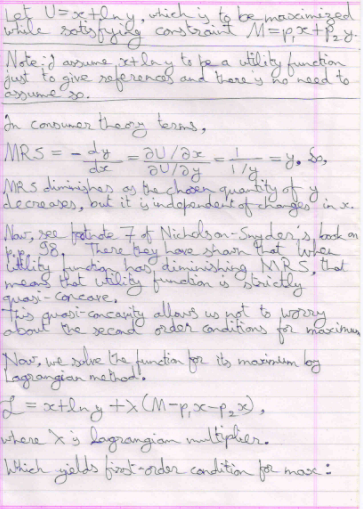 Let U=x+lny, which is to be maximized
while satisfying constraint M=p₁x+p₂y.
Note: I assume x+lny to be a utility function
just to give references and there is no need to
assume so.
In consumer theory terms,
MRS = - dy/dx = ∂U/∂x / ∂U/∂y = 1 / 1/y = y. So,
MRS diminishes as the chosen quantity of y
decreases, but it is independent of changes in x.
Now, see footnote 7 of Nicholson-Snyder's book on
p.p. 98. There they have shown that when
utility function has diminishing MRS, that
means that utility function is strictly
quasi-concave.
This quasi-concavity allows us not to worry
about the second order conditions for maximum
Now, we solve the function for its maximum by
Lagrangian method.
ℒ = x+lny + λ(M-p₁x-p₂x),
where λ is lagrangian multiplier.
Which yields first-order condition for max: